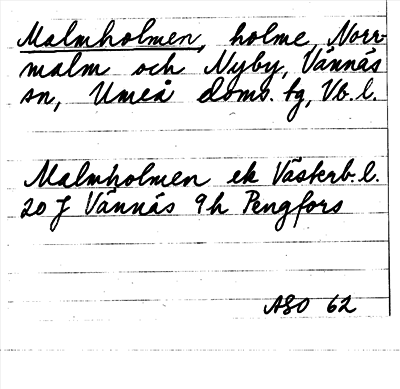 Malmholmen, holme, Norr-
malm och Nyby, Vännäs
sn, Umeå doms. tg, Vb. l.
Malmholmen ek Västerb. l.
20 J Vännäs 9h Pengfors
ASO 62